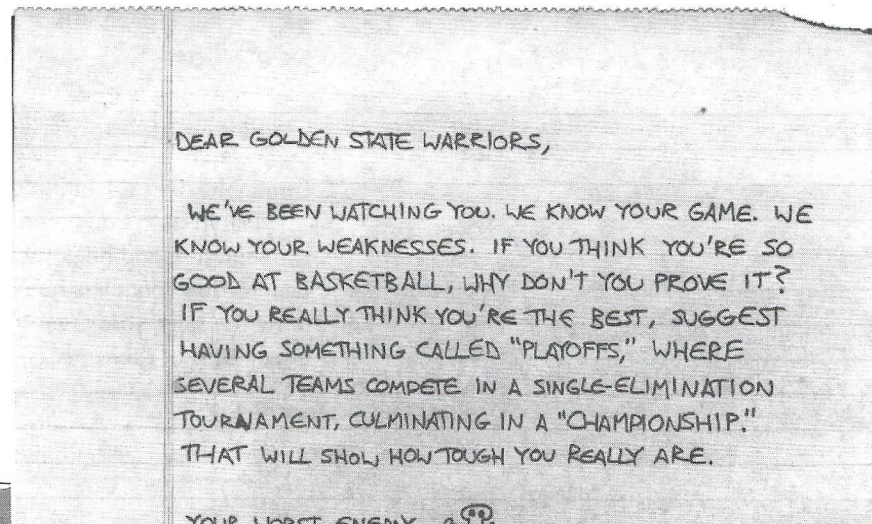 DEAR GOLDEN STATE WARRIORS,
WE'VE BEEN WATCHING YOU. WE KNOW YOUR GAME. WE
KNOW YOUR WEAKNESSES. IF YOU THINK YOU'RE SO
GOOD AT BASKETBALL, WHY DON'T YOU PROVE IT?
IF YOU REALLY THINK YOU'RE THE BEST, SUGGEST
HAVING SOMETHING CALLED "PLAYOFFS," WHERE
SEVERAL TEAMS COMPETE IN A SINGLE-ELIMINATION
TOURNAMENT, CULMINATING IN A "CHAMPIONSHIP."
THAT WILL SHOW HOW TOUGH YOU REALLY ARE.
YOUR WORST ENEMY